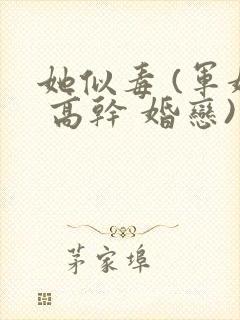 她似毒 (軍
高幹 婚戀)
茅家埠